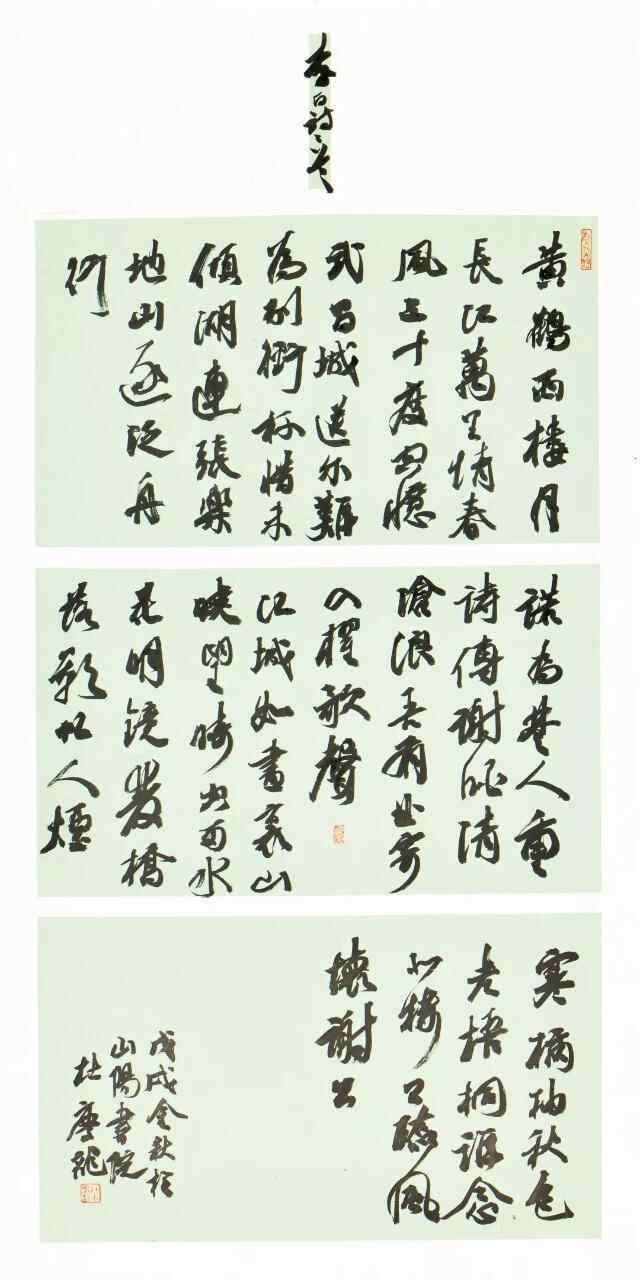 李白詩二首
黃鶴西樓月
長江萬里情春
風三十度空憶
武昌城送爾難
為別銜杯惜未
傾湖連張樂
地山逐泛舟
行
諾為楚人重
詩傳謝朓清
滄浪吾有曲寄
入櫂歌聲
江城如畫裏山
曉望晴空兩水
夾明鏡雙橋
落彩虹人煙
寒橘柚秋色
老梧桐誰念
北樓上臨風
懷謝公
戊戌金秋於
山陽書院
杜慶龍